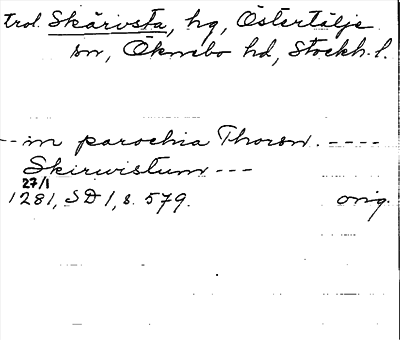 trol. Skärvsta, hg, Östertälje
sn, Öknebo hd, Stockh. l.
-- in parochia Thorsn. ----
Skirwistum ---
27/1
1281, SD 1, s. 579. orig.